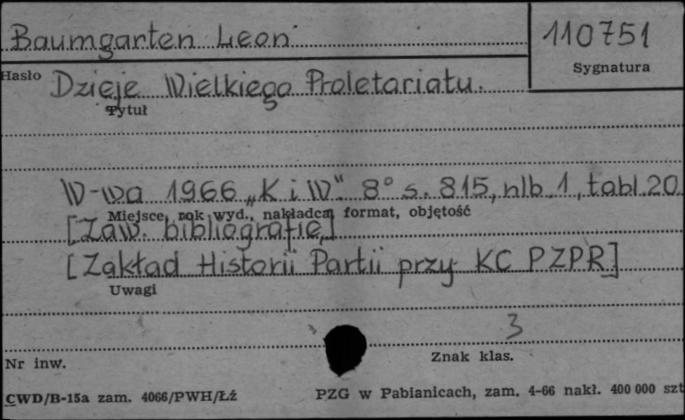 Baumgarten Leon
110751
Hasło
Sygnatura
Dzieje Wielkiego Proletariatu.
Tytuł
W-wa 1966 „K i W". 8° s. 815, nlb. 1, tabl. 20
Miejsce, rok wyd., nakładca, format, objętość
[Zaw. bibliografię]
[Zakład Historii Partii przy KC PZPR]
Uwagi
3
Nr inw.
Znak klas.
CWD/B-15a zam. 4066/PWH/Łź
PZG w Pabianicach, zam. 4-66 nakł. 400 000 szt